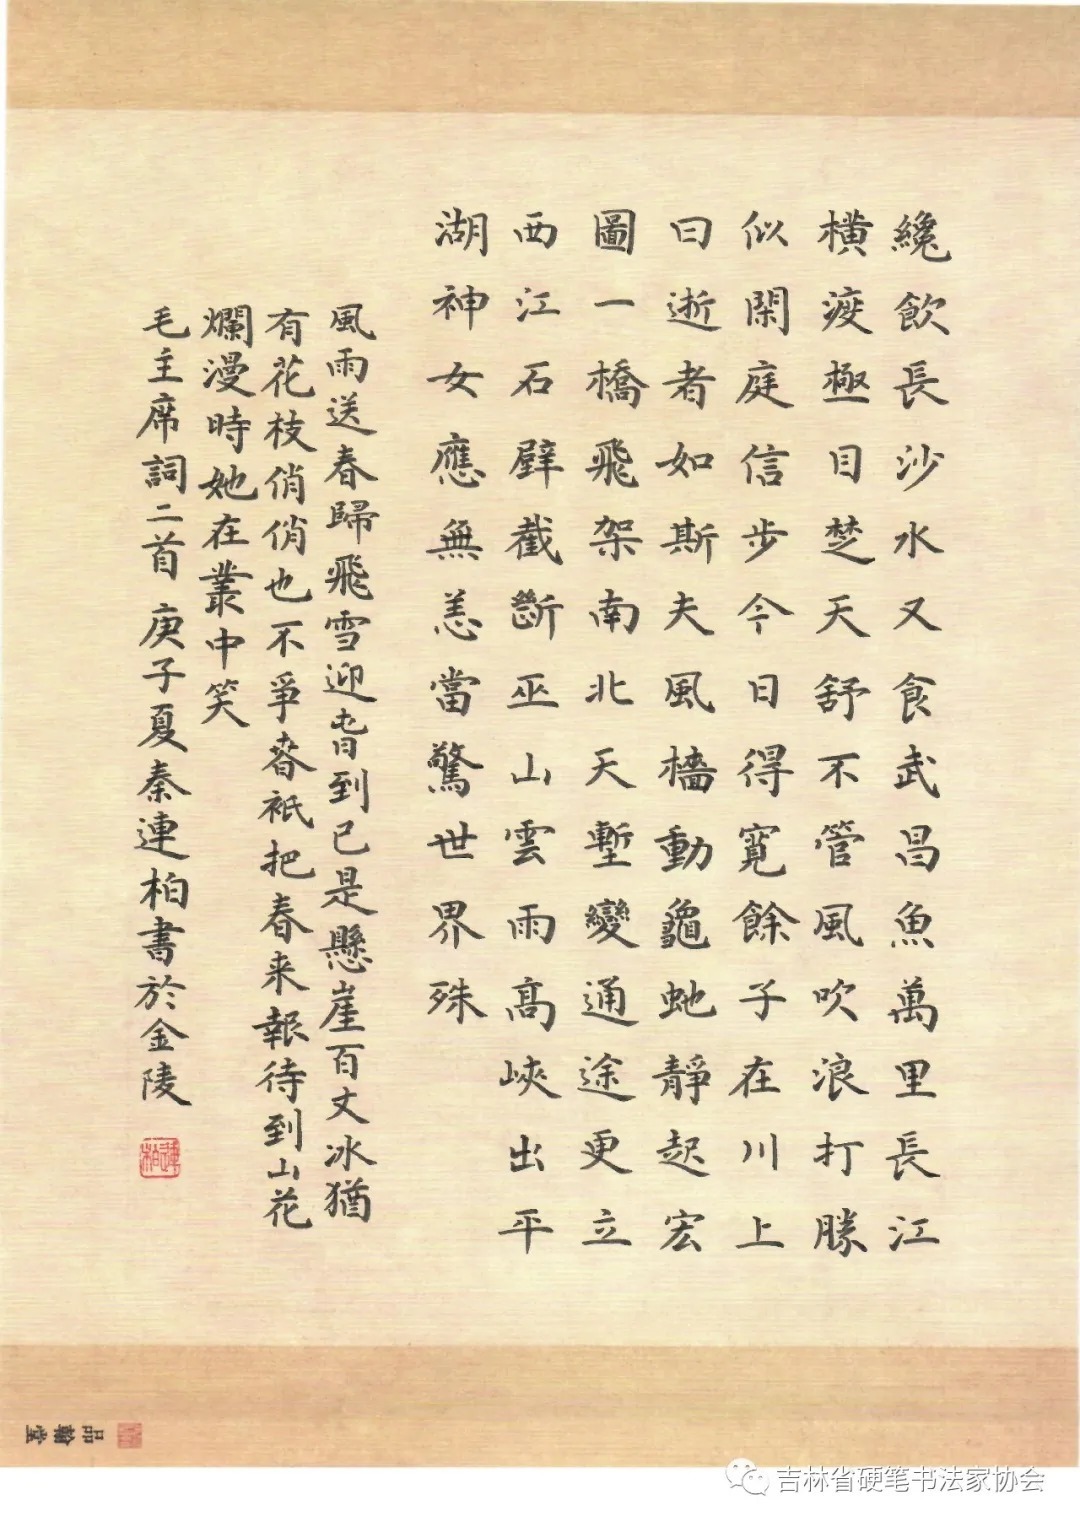 纔飲長沙水又食武昌魚萬里長江
橫渡極目楚天舒不管風吹浪打勝
似閑庭信步今日得寬餘子在川上
曰逝者如斯夫風檣動龜虵靜起宏
圖一橋飛架南北天塹變通途更立
西江石壁截斷巫山雲雨高峽出平
湖神女應無恙當驚世界殊
風雨送春歸飛雪迎旾到已是懸崖百丈冰猶
有花枝俏俏也不爭春衹把春来報待到山花
爛漫時她在叢中笑
毛主席詞二首庚子夏秦連柏書於金陵
連柏
品翰堂
吉林省硬笔书法家协会